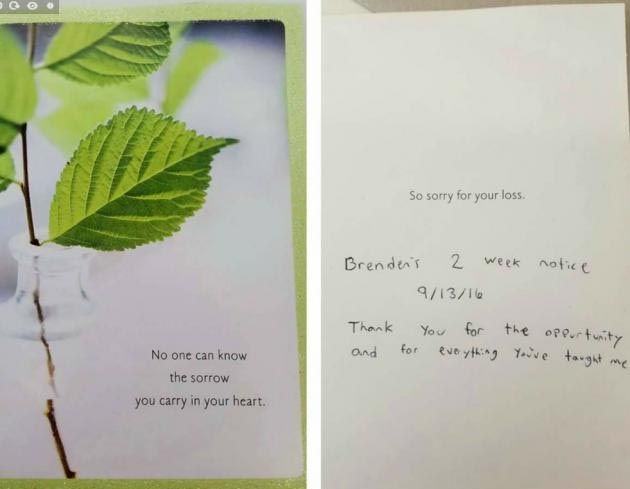 No one can know
the sorrow
you carry in your heart.
So sorry for your loss.
Brenden's 2 week notice
9/13/16
Thank you for the oppurtunity
and for everything You've taught me